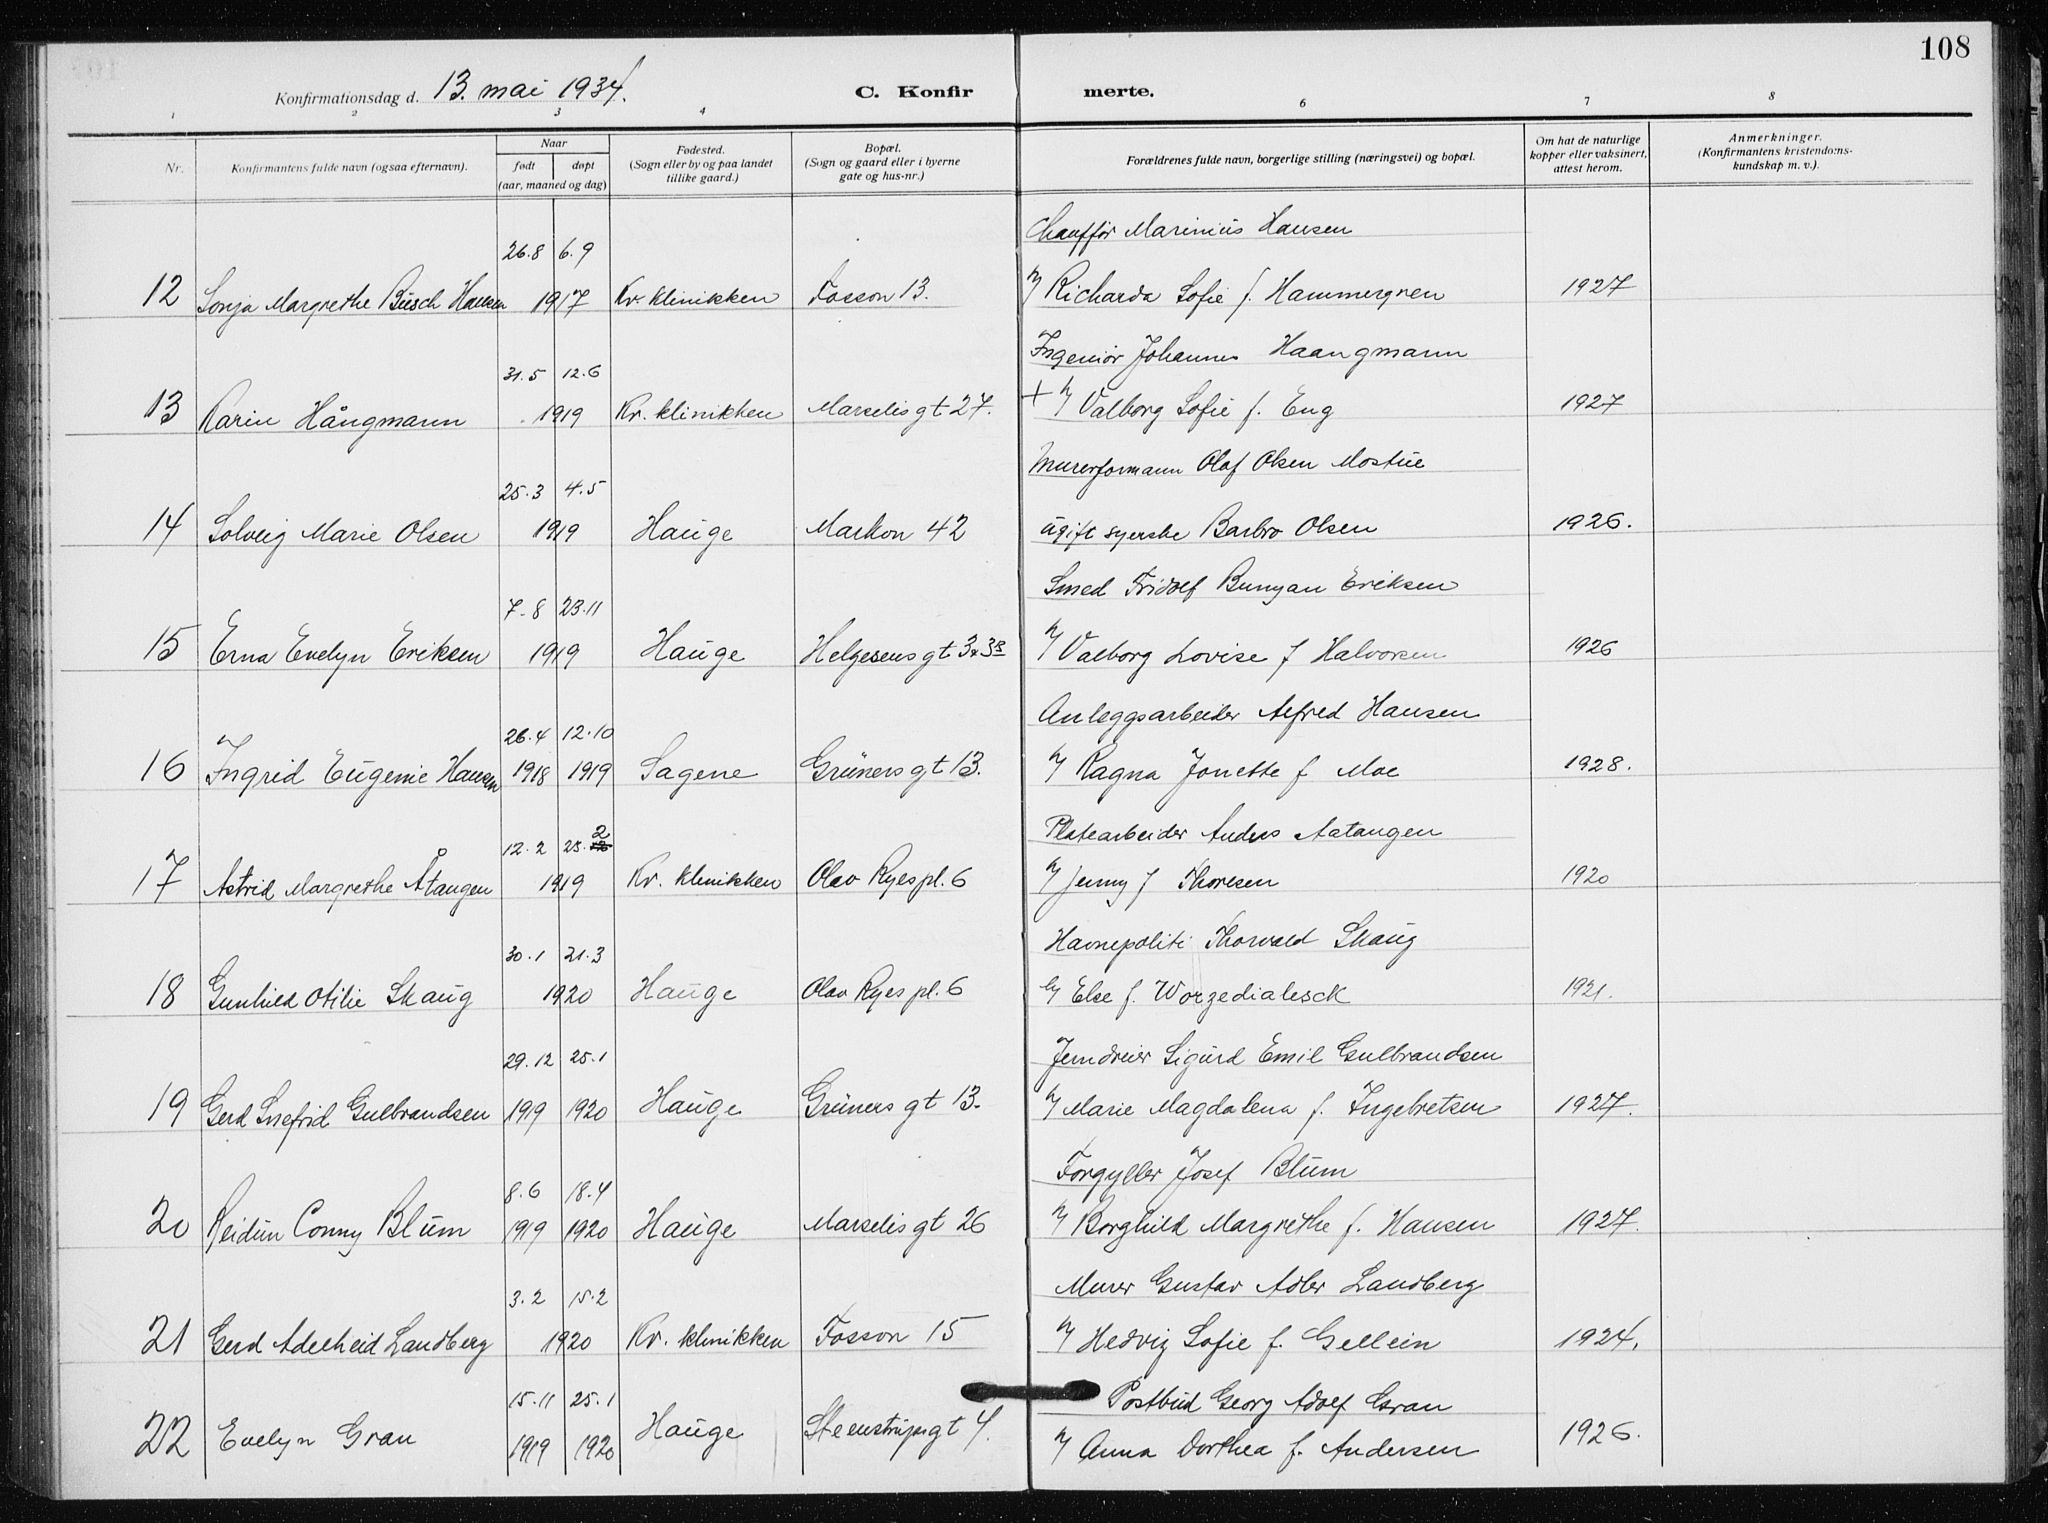 108
Konfirmationsdag d. 13. mai 1934.
C. Konfir merte.
1 2 3 4 5 6 7 8
Nr.
Konfirmantens fulde navn (ogsaa efternavn).
Naar
født døpt
(aar, maaned og dag)
Fødested.
(Sogn eller by og paa landet
tillike gaard.)
Bopæl.
(Sogn og gaard eller i byerne
gate og hus-nr.)
Forældrenes fulde navn, borgerlige stilling (næringsvei) og bopæl.
Om hat de naturlige
kopper eller vaksinert,
attest herom.
Anmerkninger.
(Konfirmantens kristendoms-
kundskap m. v.).
26.8 6.9 Chauffør Marinius Hansen
12 Sonja Margrethe Busch Hansen 1917 Kv. klinikken Fosson 13. h/ Richarda Sofie f. Hammergren 1927
31.5 12.6 Ingeniør Johannes Haangmann
13 Karin Hångmann 1919 Kv. klinikken Marselisgt 27. + h/ Valborg Sofie f. Eng 1927
25.3 4.5 Murerformann Olaf Olsen Mostue
14 Solveig Marie Olsen 1919 Hauge Markvn 42 ugift syerske Barbro Olsen 1926.
7.8 23.11 Smed Fridolf Bunyan Eriksen
15 Erna Evelyn Eriksen 1919 Hauge Helgesensgt h/ Valborg Lovise f Halvorsen 1926
26.4 12.10 Anleggsarbeider Alfred Hansen
16 Ingrid Eugenie Hansen 1918 1919 Sagene Grünersgt 13. h/ Ragna Jonette f Moe 1928.
12.2 25.2 Platearbeider Anders Aatangen
17 Astrid Margrethe Åtangen 1919 Kv. klinikken Olav Ryespl. 6 h/ Jenny f Thoresen 1920
30.1 21.3 Havnepoliti Thorvald Skaug
18 Gunhild Otilie Skaug 1920 Hauge Olav Ryes pl. 6 h/ Else f. Worzedialesck 1921.
29.12 25.1 Jerndreier Sigurd Emil Gulbrandsen
19 Gerd Snefrid Gulbrandsen 1919 1920 Hauge Grüners gt 13. h/ Marie Magdalena f. Ingebretsen 1927.
8.6 18.4 Forgyller Josef Blum
20 Reidun Conny Blum 1919 1920 Hauge Marselisgt 26 h/ Borghild Margrethe f. Hansen 1927.
3.2 15.2 Murer Gustav Adler Landberg
21 Gerd Adelheid Landberg 1920 Kv. klinikken Fosson 15 h/ Hedvig Sofie f. Gellein 1924.
15.11 25.1 Postbud Georg Adolf Gran
22 Evelyn Gran 1919 1920 Hauge Steenstrupsgt 4. h/ Anna Dorthea f. Andersen 1926.